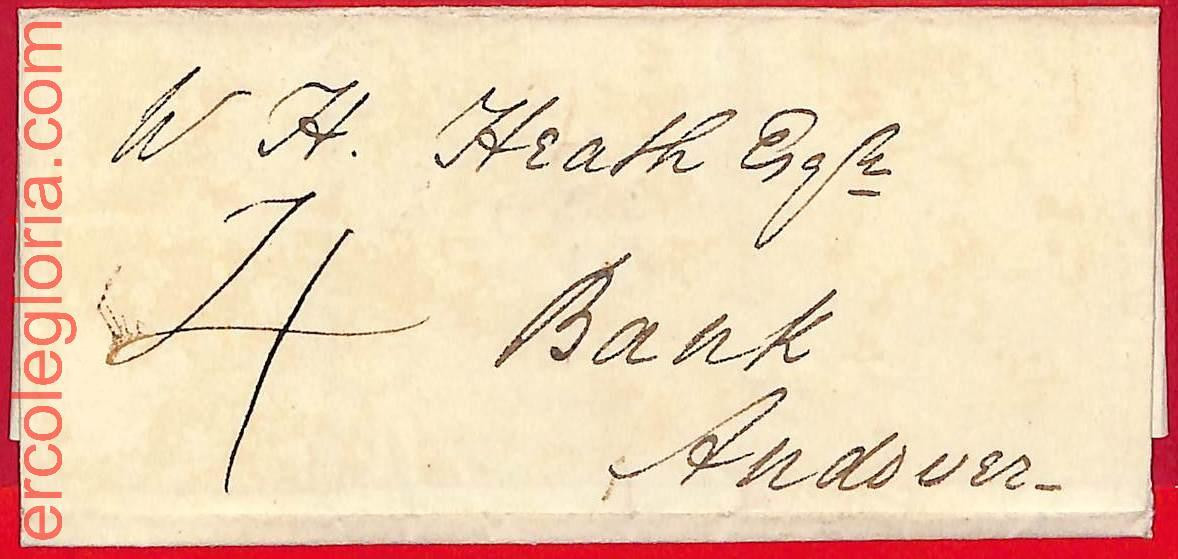 W H. Heath Esqre
4
Bank
Andover-
ercolegloria.com